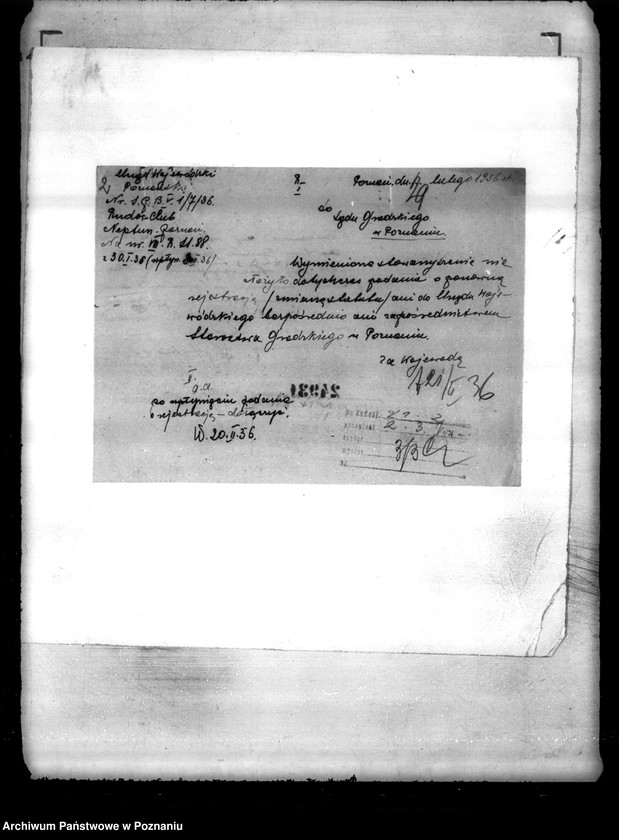 Urząd Wojewódzki
Poznański
Nr. S.P.B. V. 1/7/36.
Ruder-Club
Neptun-Poznań.
Na nr. VII. R. 11.88.
z 30.I.36 (wpłyn. I.36)
I
Poznań, dn. lutego 1936 r.
19
do
Sądu Grodzkiego
w Poznaniu
Wymienione stowarzyszenie nie
złożyło dotychczas podania o ponowną
rejestrację /zmianę statutu/ ani do Urzędu Woje-
wódzkiego bezpośrednio ani za pośrednictwem
Starostwa Grodzkiego w Poznaniu.
Za Wojewodę
21/II 36
II.
a.a.
po wpłynięciu podania
o rejestrację – dołączyć.
W. 20.II.36.
24931
Archiwum Państwowe w Poznaniu